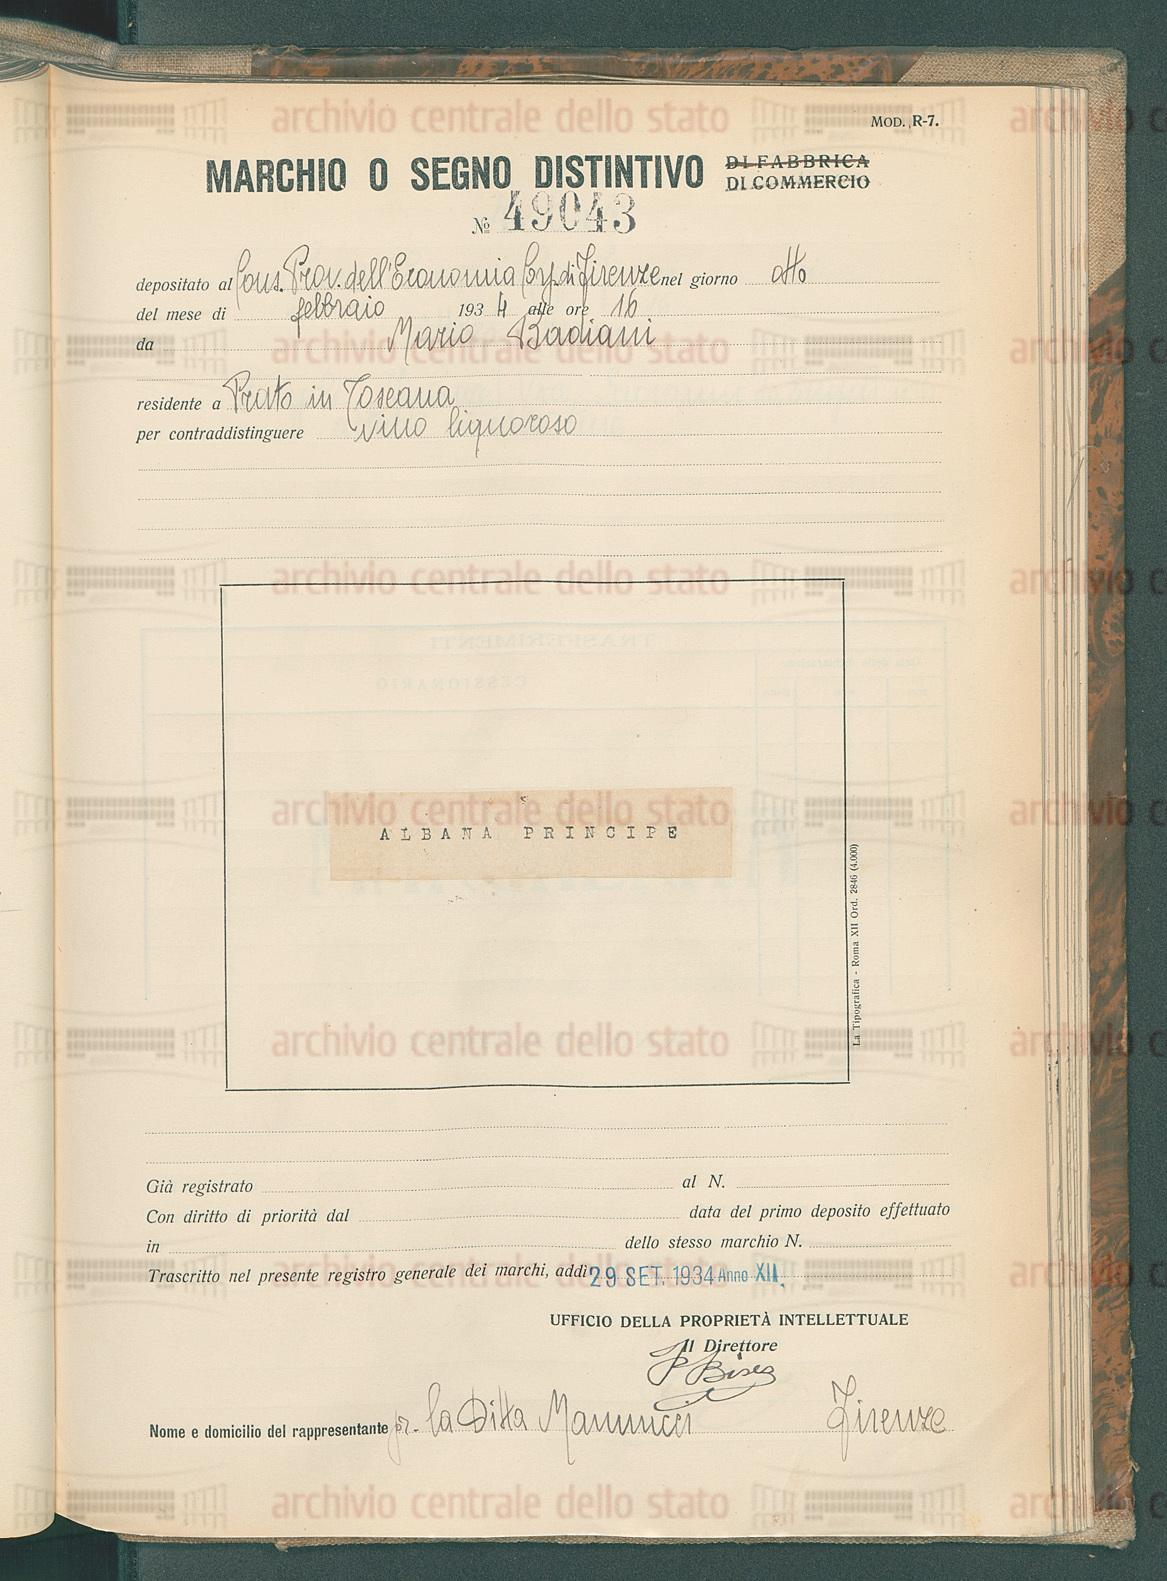 MOD. R-7.
MARCHIO O SEGNO DISTINTIVO DI FABBRICA
DI COMMERCIO
№ 49043
depositato al Cons. Prov. dell'Economia Corp. di Firenze nel giorno otto
del mese di febbraio 1934 alle ore 16
da Mario Badiani
residente a Prato in Toscana
per contraddistinguere vino liquoroso
ALBANA PRINCIPE
La Tipografica - Roma XII Ord. 2846 (4.000)
Già registrato al N.
Con diritto di priorità dal data del primo deposito effettuato
in dello stesso marchio N.
Trascritto nel presente registro generale dei marchi, addì 29 SET. 1934 Anno XII
UFFICIO DELLA PROPRIETÀ INTELLETTUALE
Il Direttore
Nome e domicilio del rappresentante pr. la Ditta Mannucci Firenze
archivio centrale dello stato
archivio centrale dello stato
archivio centrale dello stato
archivio centrale dello stato
archivio centrale dello stato
archivio centrale dello stato
archivio centrale dello stato